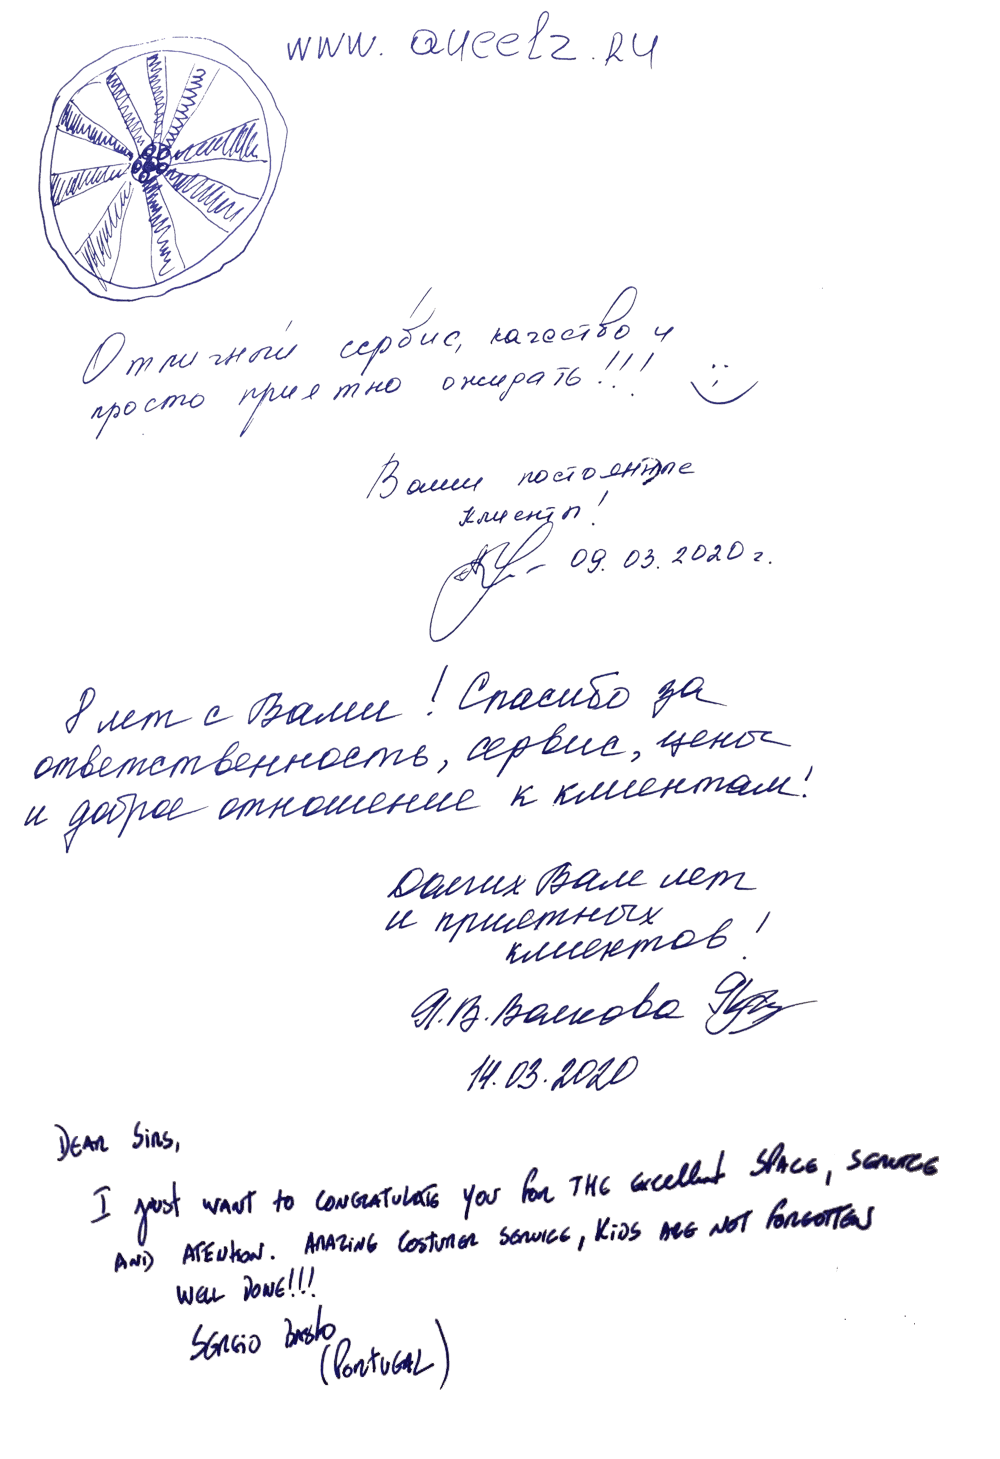 www. aueelz.ru
Отличный сервис, качество и
просто приятно ожидать!!!
Ваши постоянные
клиенты!
09.03.2020 г.
8 лет с Вами! Спасибо за
ответственность, сервис, цены
и доброе отношение к клиентам!
Долгих Вам лет
и приятных
клиентов!
Я.В. Волкова
14.03.2020
DEAR SIRS,
I just WANT to CONGRATULATE YOU FOR THE Excellent SPACE, SERVICE
AND ATENTION. AMAZING COSTUMER SERVICE, KIDS ARE NOT FORGOTTEN
WELL DONE!!!
SERGIO BASTO
(PORTUGAL)